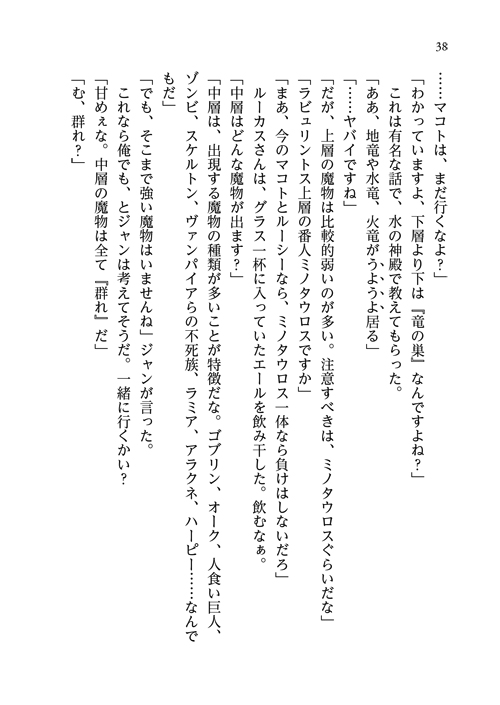 38
……マコトは、まだ行くなよ?」
「わかっていますよ、下層より下は『竜の巣』なんですよね?」
これは有名な話で、水の神殿で教えてもらった。
「ああ、地竜や水竜、火竜がうようよ居る」
「……ヤバイですね」
「だが、上層の魔物は比較的弱いのが多い。注意すべきは、ミノタウロスぐらいだな」
「ラビュリントス上層の番人ミノタウロスですか」
「まあ、今のマコトとルーシーなら、ミノタウロス一体なら負けはしないだろ」
ルーカスさんは、グラス一杯に入っていたエールを飲み干した。飲むなぁ。
「中層はどんな魔物が出ます?」
「中層は、出現する魔物の種類が多いことが特徴だな。ゴブリン、オーク、人食い巨人、
ゾンビ、スケルトン、ヴァンパイアらの不死族、ラミア、アラクネ、ハーピー……なんで
もだ」
「でも、そこまで強い魔物はいませんね」ジャンが言った。
これなら俺でも、とジャンは考えてそうだ。一緒に行くかい?
「甘めぇな。中層の魔物は全て『群れ』だ」
「む、群れ?」